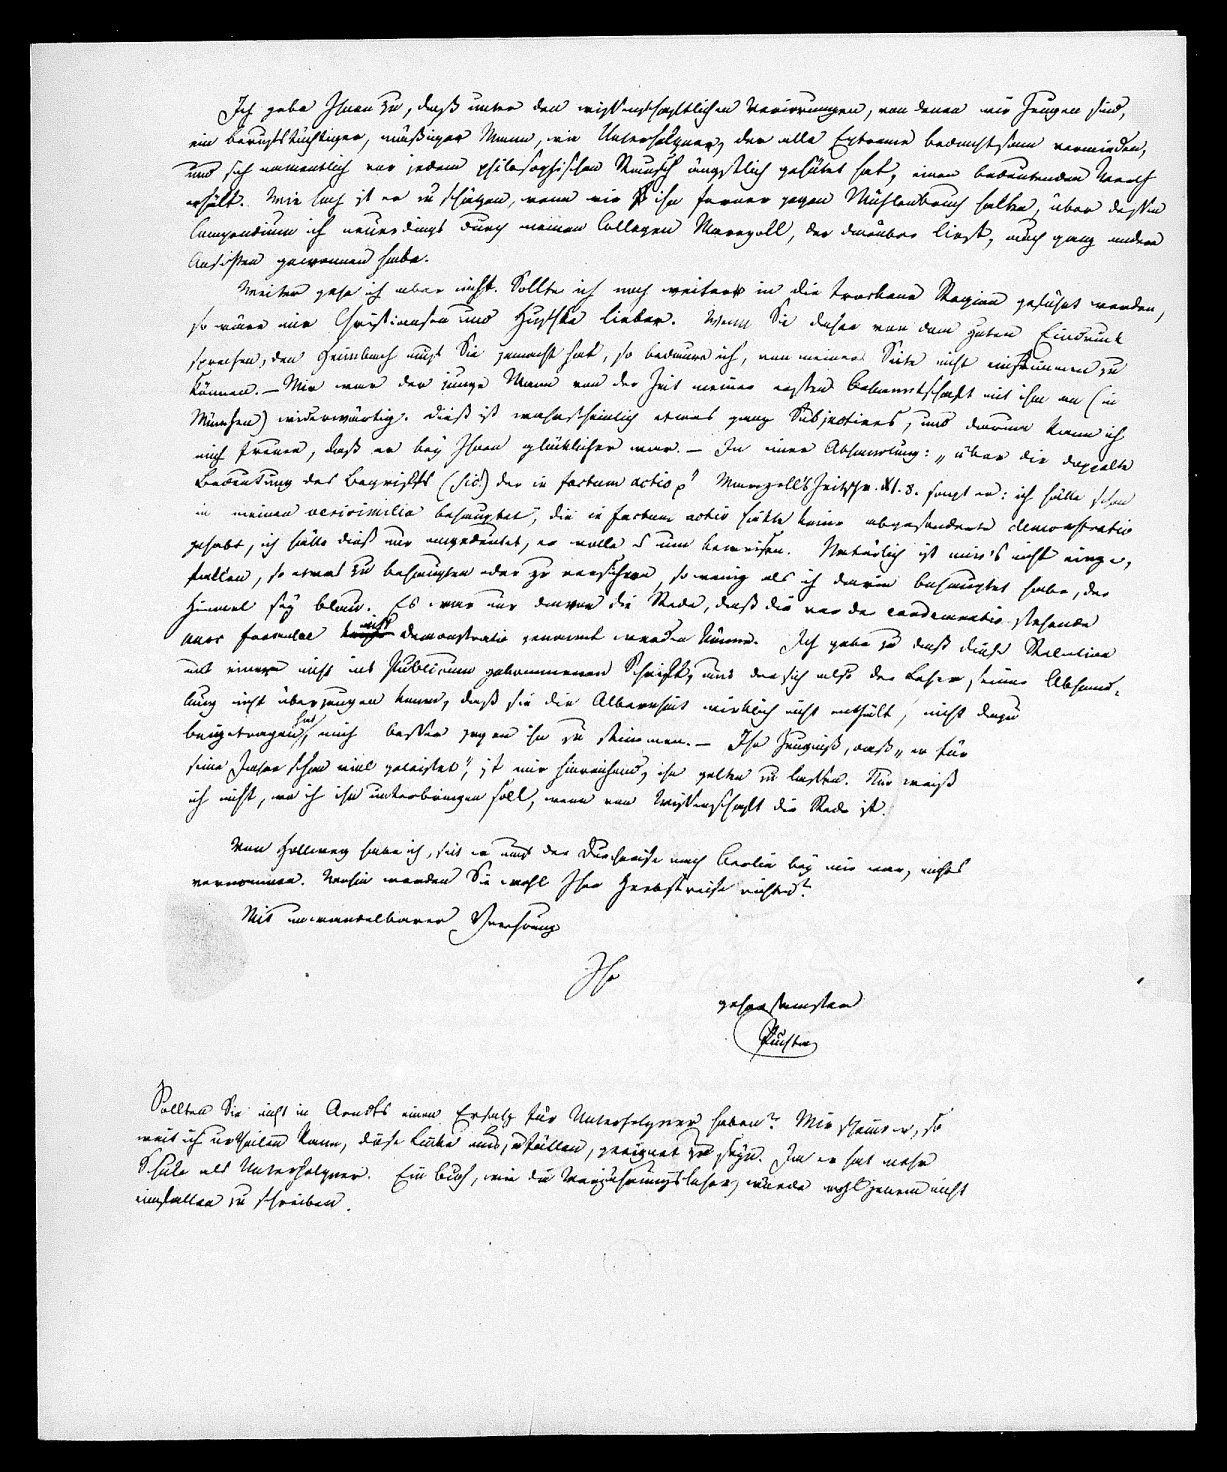 Ich gebe Ihnen zu, daß unter den wissenschaftlichen Verirrungen, von denen wir Zeugen sind,
ein berufstüchtiger, mäßiger Mann, wie Unterholzner, der alle Extreme bedachtsam vermieden,
und sich namentlich vor jedem philosophischen Rausch ängstlich gehütet hat, einen bedeutenden Werth
erhält. Wie hoch ist er zu schätzen, wenn wir ihn ferner gegen Mühlenbruch halten, über dessen
Compendium ich neuerdings durch meinen Collegen Marezoll, der darüber liest, auch ganz andere
Ansichten gewonnen habe.
Weiter gehe ich aber nicht. Sollte ich noch weiter in die trockene Region geführt werden,
so wäre mir Christiansen und Huschke lieber. Wenn Sie daher von dem guten Eindruck
sprechen, den Heimbach auf Sie gemacht hat, so bedaure ich, von meiner Seite nicht einstimmen zu
können. – Mir war der junge Mann von der Zeit meiner ersten Bekanntschaft mit ihm an (in
München) widerwärtig. Dieß ist wahrscheinlich etwas ganz Subjectives, und darum kann ich
mich freuen, daß er bey Ihnen glücklicher war. – In einer Abhandlung: „über die doppelte
Bedeutung des Begriffs (sic!) der in factum actio“ Marezoll's Zeitschr. XI. 8. sagt er: ich hätte schon
in meinen verisimilia behauptet, die in factum actio hätte keine abgesonderte demonstratio
gehabt, ich hätte dieß nur angedeutet, er wolle es nun beweisen. Natürlich ist mir's nicht einge-
fallen, so etwas zu behaupten oder zu versichern, so wenig als ich darin behauptet habe, der
Himmel sey blau. Es war nur davon die Rede, daß die vor der condemnatio stehende
pars formulae nicht demonstratio genannt werden könne. Ich gebe zu daß diese Relation
aus einer nicht ins Publicum gekommenen Schrift, aus der sich also der Leser seiner Abhand-
lung nicht überzeugen kann, daß sie die Albernheit wirklich nicht enthält, nicht dazu
beigetragen hat, mich besser gegen ihn zu stimmen. – Ihr Zeugniß, daß „er für
seine Jahre schon viel geleistet“, ist mir hinreichend, ihn gelten zu lassen. Nur weiß
ich nicht, wo ich ihn unterbringen soll, wenn von Wissenschaft die Rede ist.
Von Hollweg habe ich, seit er auf der Durchreise nach Berlin bey mir war, nichts
vernommen. Wohin werden Sie wohl Ihre Herbstreise richten?
Mit unwandelbarer Verehrung
Ihr
gehorsamster
Puchta
Sollten Sie nicht in Arndts einen Ersatz für Unterholzner haben? Mir scheint er, so
weit ich urtheilen kann, diese Lücke auszufüllen, geeignet zu seyn. Ja er hat mehr
Schule als Unterholzner. Ein Buch, wie die Verjährungslehre, würde wohl jenem nicht
einfallen zu schreiben.